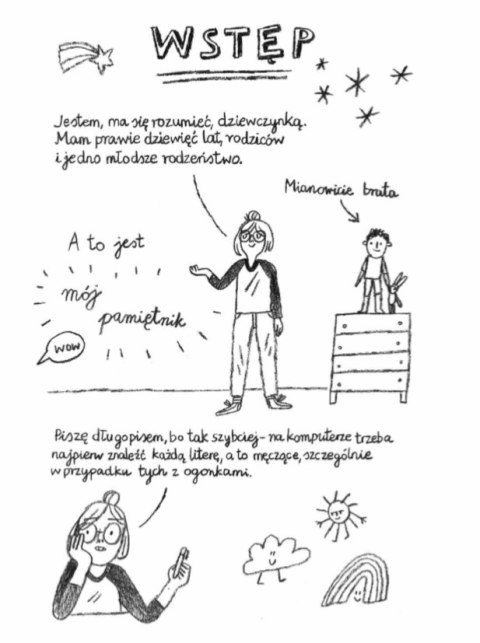 WSTĘP
Jestem, ma się rozumieć, dziewczynką.
Mam prawie dziewięć lat, rodziców
i jedno młodsze rodzeństwo.
Mianowicie brata
A to jest
mój
pamiętnik
WOW
Piszę długopisem, bo tak szybciej – na komputerze trzeba
najpierw znaleźć każdą literę, a to męczące, szczególnie
w przypadku tych z ogonkami.